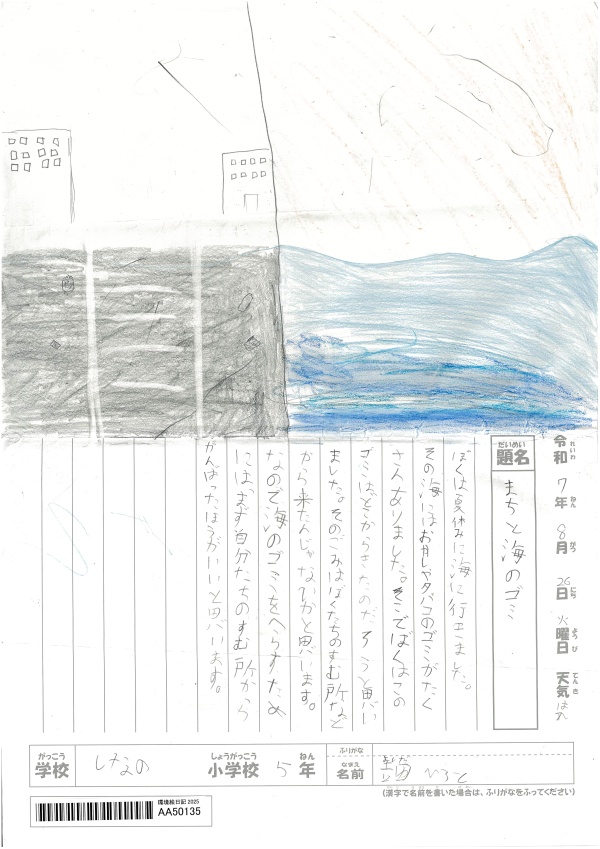 令和 7年 8月 26日 火曜日 天気 はれ
題名 まちと海のゴミ
ぼくは夏休みに海に行きました。
その海にはおかしやタバコのゴミがたく
さんありました。そこでぼくはこの
ゴミはどこからきたのだろうと思い
ました。そのごみはぼくたちのすむ所など
から来たんじゃないかと思います。
なので海のゴミをへらすため
には、まず自分たちのすむ所から
がんばったほうがいいと思います。
学校 しなの 小学校 5年
ふりがな
名前 いろと
(漢字で名前を書いた場合は、ふりがなをふってください)
環境絵日記 2025
AA50135